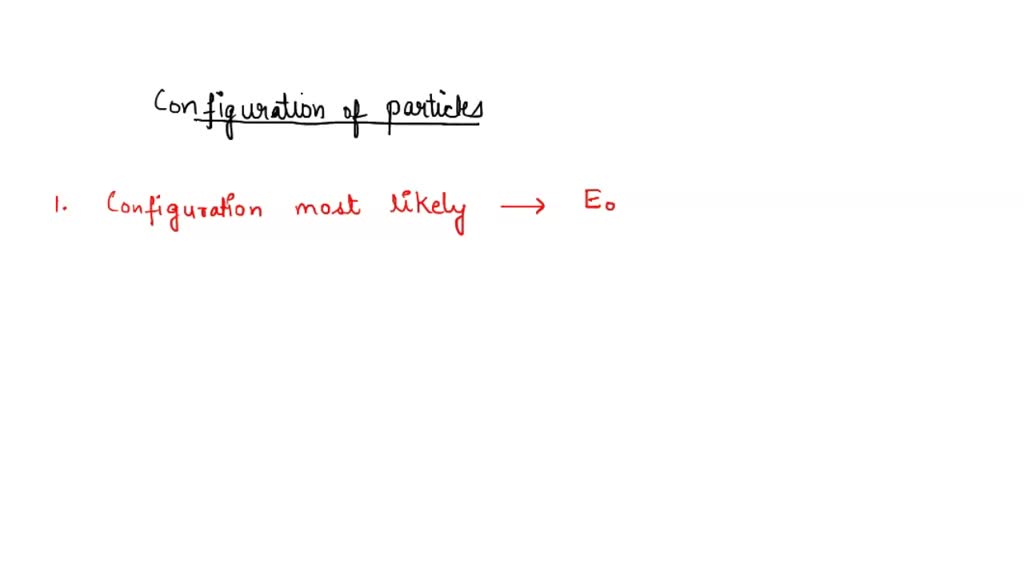 Configuration of particles
1. Configuration most likely → E₀